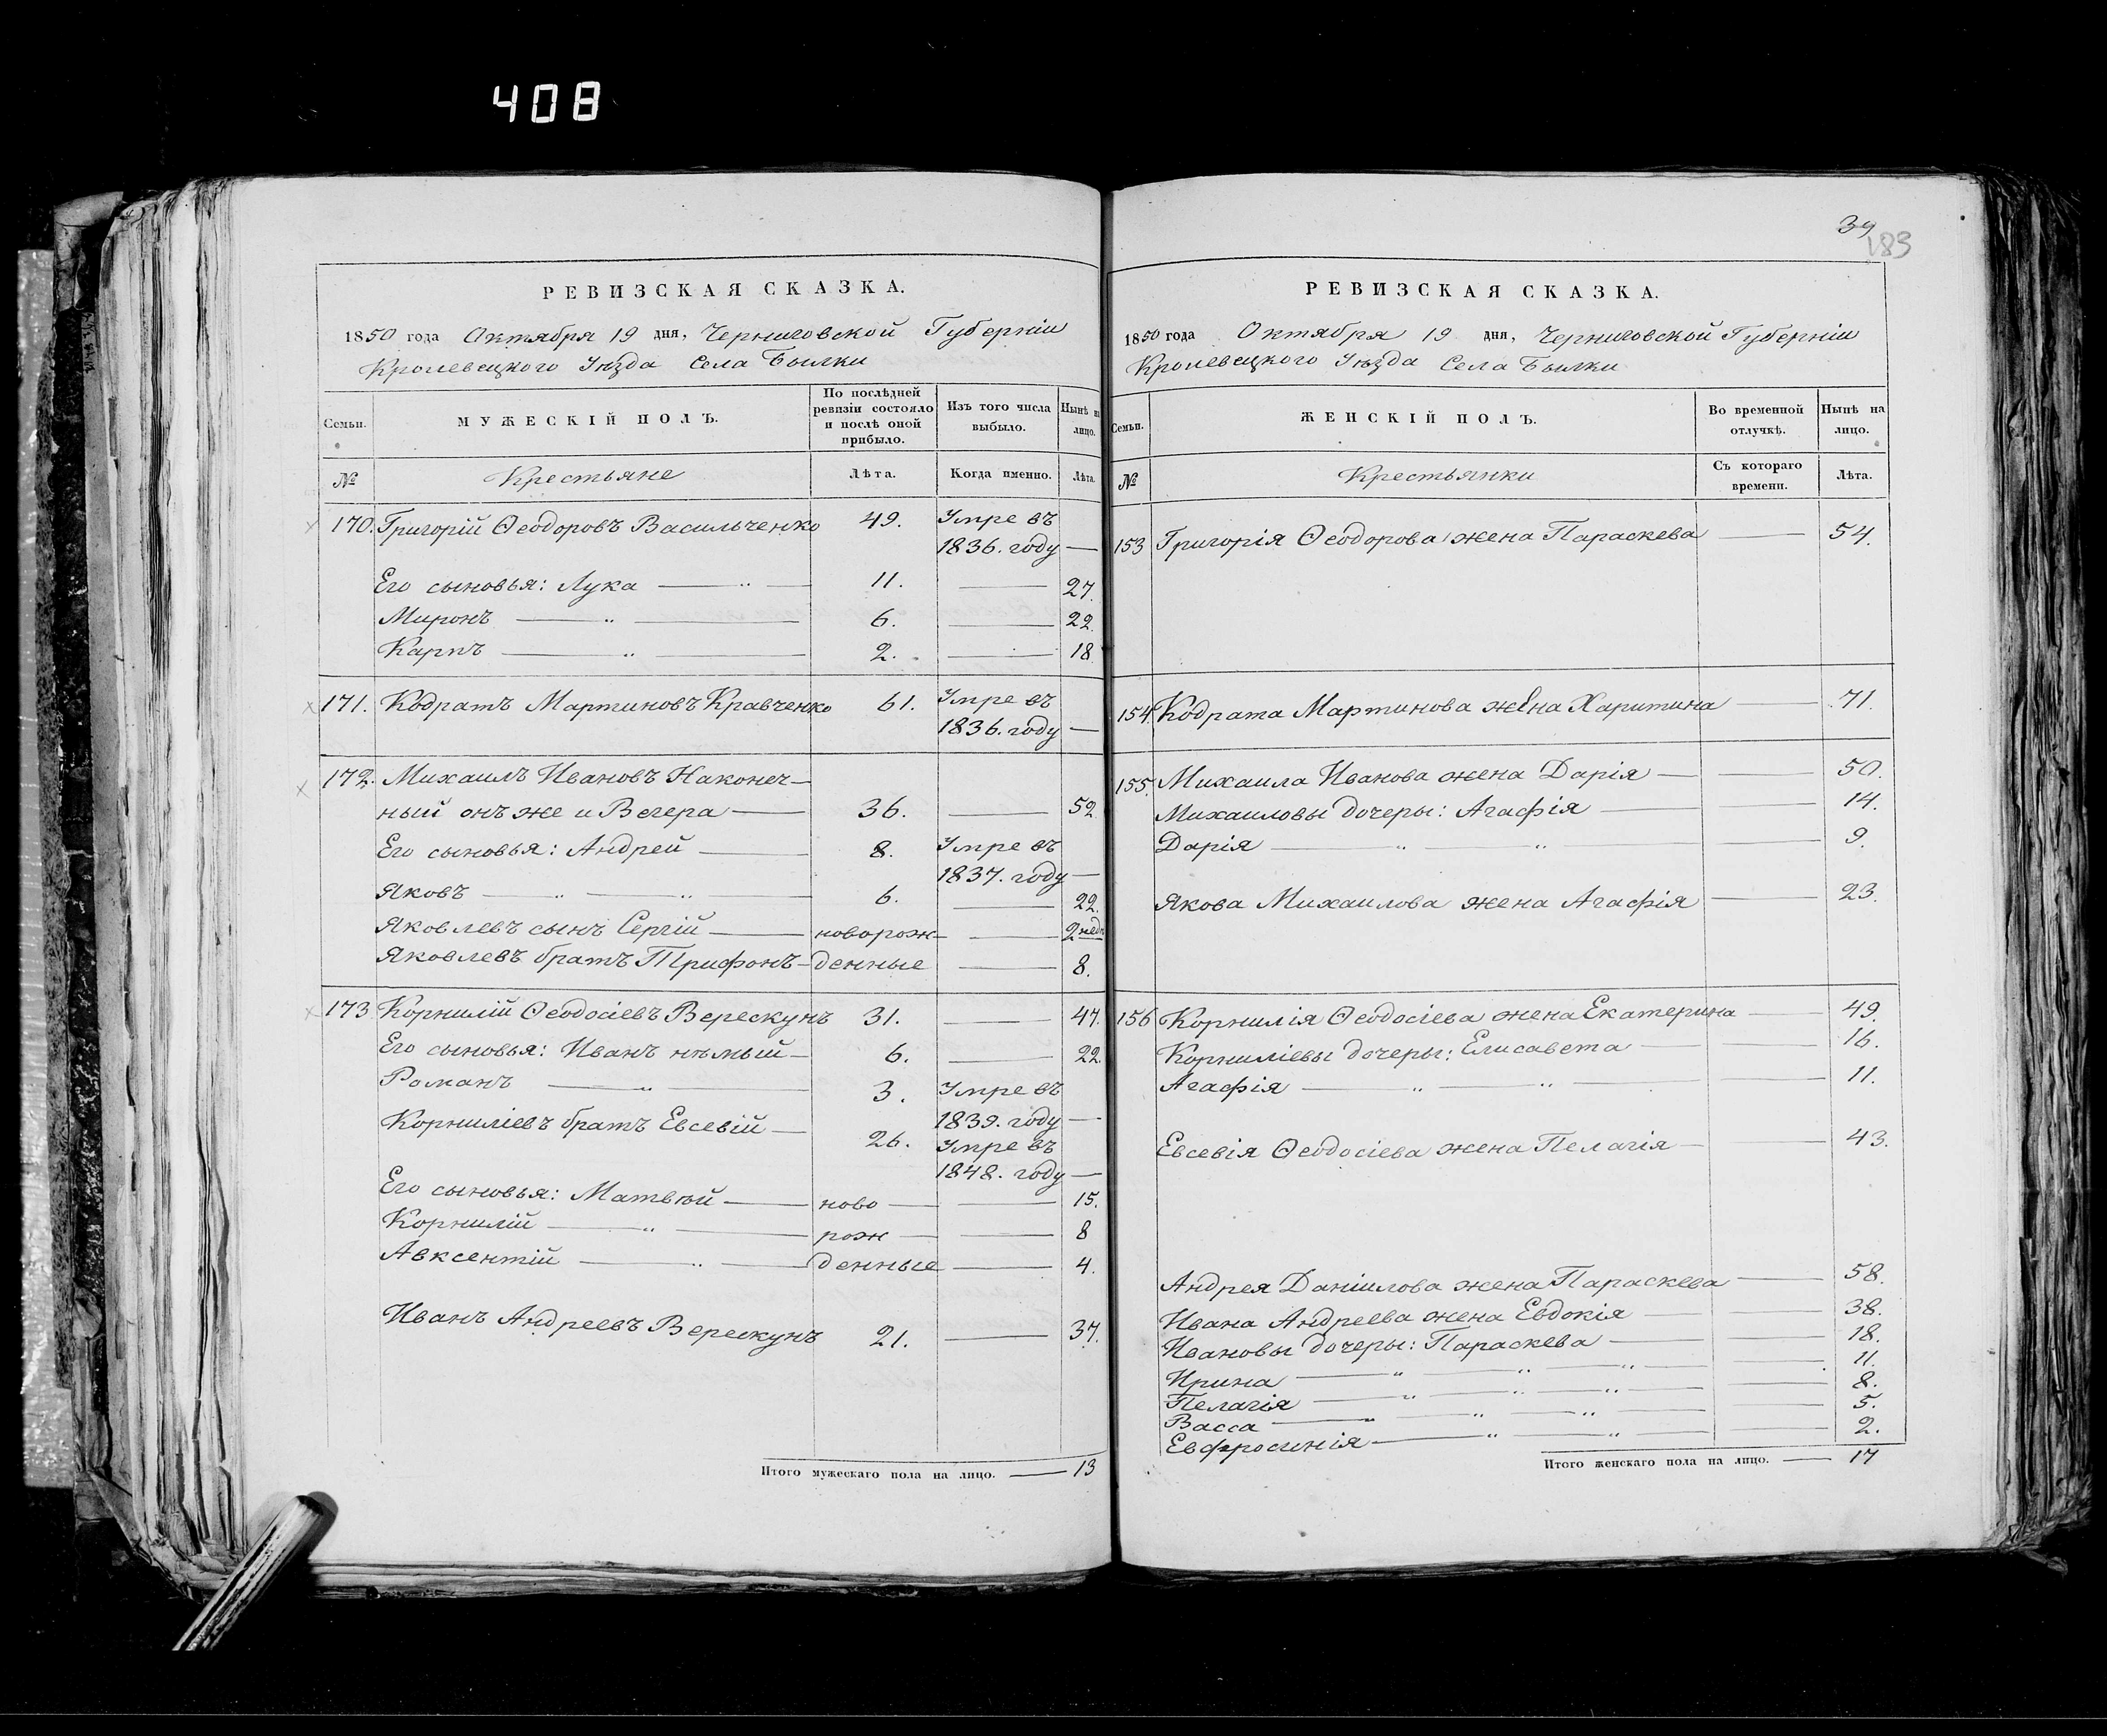 408
РЕВИЗСКАЯ СКАЗКА.
1850 года Октября 19 дня, Черниговской Губерніи
Кролевецкого Уѣзда Села Былки
Семьи.
МУЖЕСКІЙ ПОЛЪ.
По послѣдней ревизіи состояло и послѣ оной прибыло.
Изъ того числа выбыло.
Нынѣ на лицо.
№
Крестьяне
Лѣта.
Когда именно.
Лѣта.
170. Григорій Ѳеодоровъ Васильченко 49. Умре въ
1836. году —
Его сыновья: Лука — „ — 11. — 27.
Миронъ — „ — 6. — 22.
Карпъ — „ — 2. — 18
171. Кодратъ Мартиновъ Кравченко 61. Умре въ
1836. году —
172. Михаилъ Ивановъ Наконеч—
ный онъ же и Вечера — 36. — 52.
Его сыновья: Андрей — 8. Умре въ
1837. году —
Яковъ — „ — „ — 6. — 22.
Яковлевъ сынъ Сергій — новорож— — 2 нед
Яковлевъ братъ Трифонъ — денные — 8.
173 Корнилій Ѳеодосіевъ Верескунъ 31. — 47.
Его сыновья: Иванъ нѣмый — 6. — 22.
Романъ — „ — 3. Умре въ
1839. году —
Корниліевъ братъ Евсевій — 26. Умре въ
1848. году —
Его сыновья: Матвѣй — ново — — 15.
Корнилій — „ — рож — — 8
Авксентій — „ — денные — 4.
Иванъ Андреевъ Верескунъ 21. — 37.
Итого мужескаго пола на лицо. — 13
39
183
РЕВИЗСКАЯ СКАЗКА.
1850 года Октября 19 дня, Черниговской Губерніи
Кролевецкого Уѣзда Села Былки
Семьи.
ЖЕНСКІЙ ПОЛЪ.
Во временной отлучкѣ.
Нынѣ на лицо.
№
Крестьянки
Съ котораго времени.
Лѣта.
153 Григорія Ѳеодорова жена Параскева — 54.
154. Кодрата Мартинова жена Харитина — 71.
155. Михаила Иванова жена Дарія — — 50.
Михаиловы дочеры: Агафія — — 14.
Дарія — „ — „ — — 9.
Якова Михаилова жена Агафія — 23.
156 Корнилія Ѳеодосіева жена Екатерина — 49.
Корниліевы дочеры: Елисавета — — 16.
Агафія — „ — „ — — 11.
Евсевія Ѳеодосіева жена Пелагія — — 43.
Андрея Даніилова жена Параскева — 58.
Ивана Андреева жена Евдокія — — 38.
Ивановы дочеры: Параскева — — 18.
Ирина — „ — „ — „ — — 11.
Пелагія — „ — „ — „ — — 8.
Васса — „ — „ — „ — — 5.
Евфросинія — „ — „ — — 2.
Итого женскаго пола на лицо. — 17